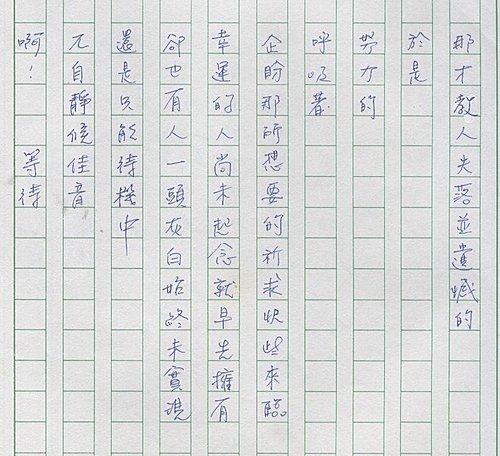 那才教人失落並遺憾的
於是
努力的
呼吸著
企盼那所想要的祈求快些來臨
幸運的人尚未起念就早先擁有
卻也有人一頭灰白始終未實現
還是只能待機中
兀自靜候佳音
啊！　等待